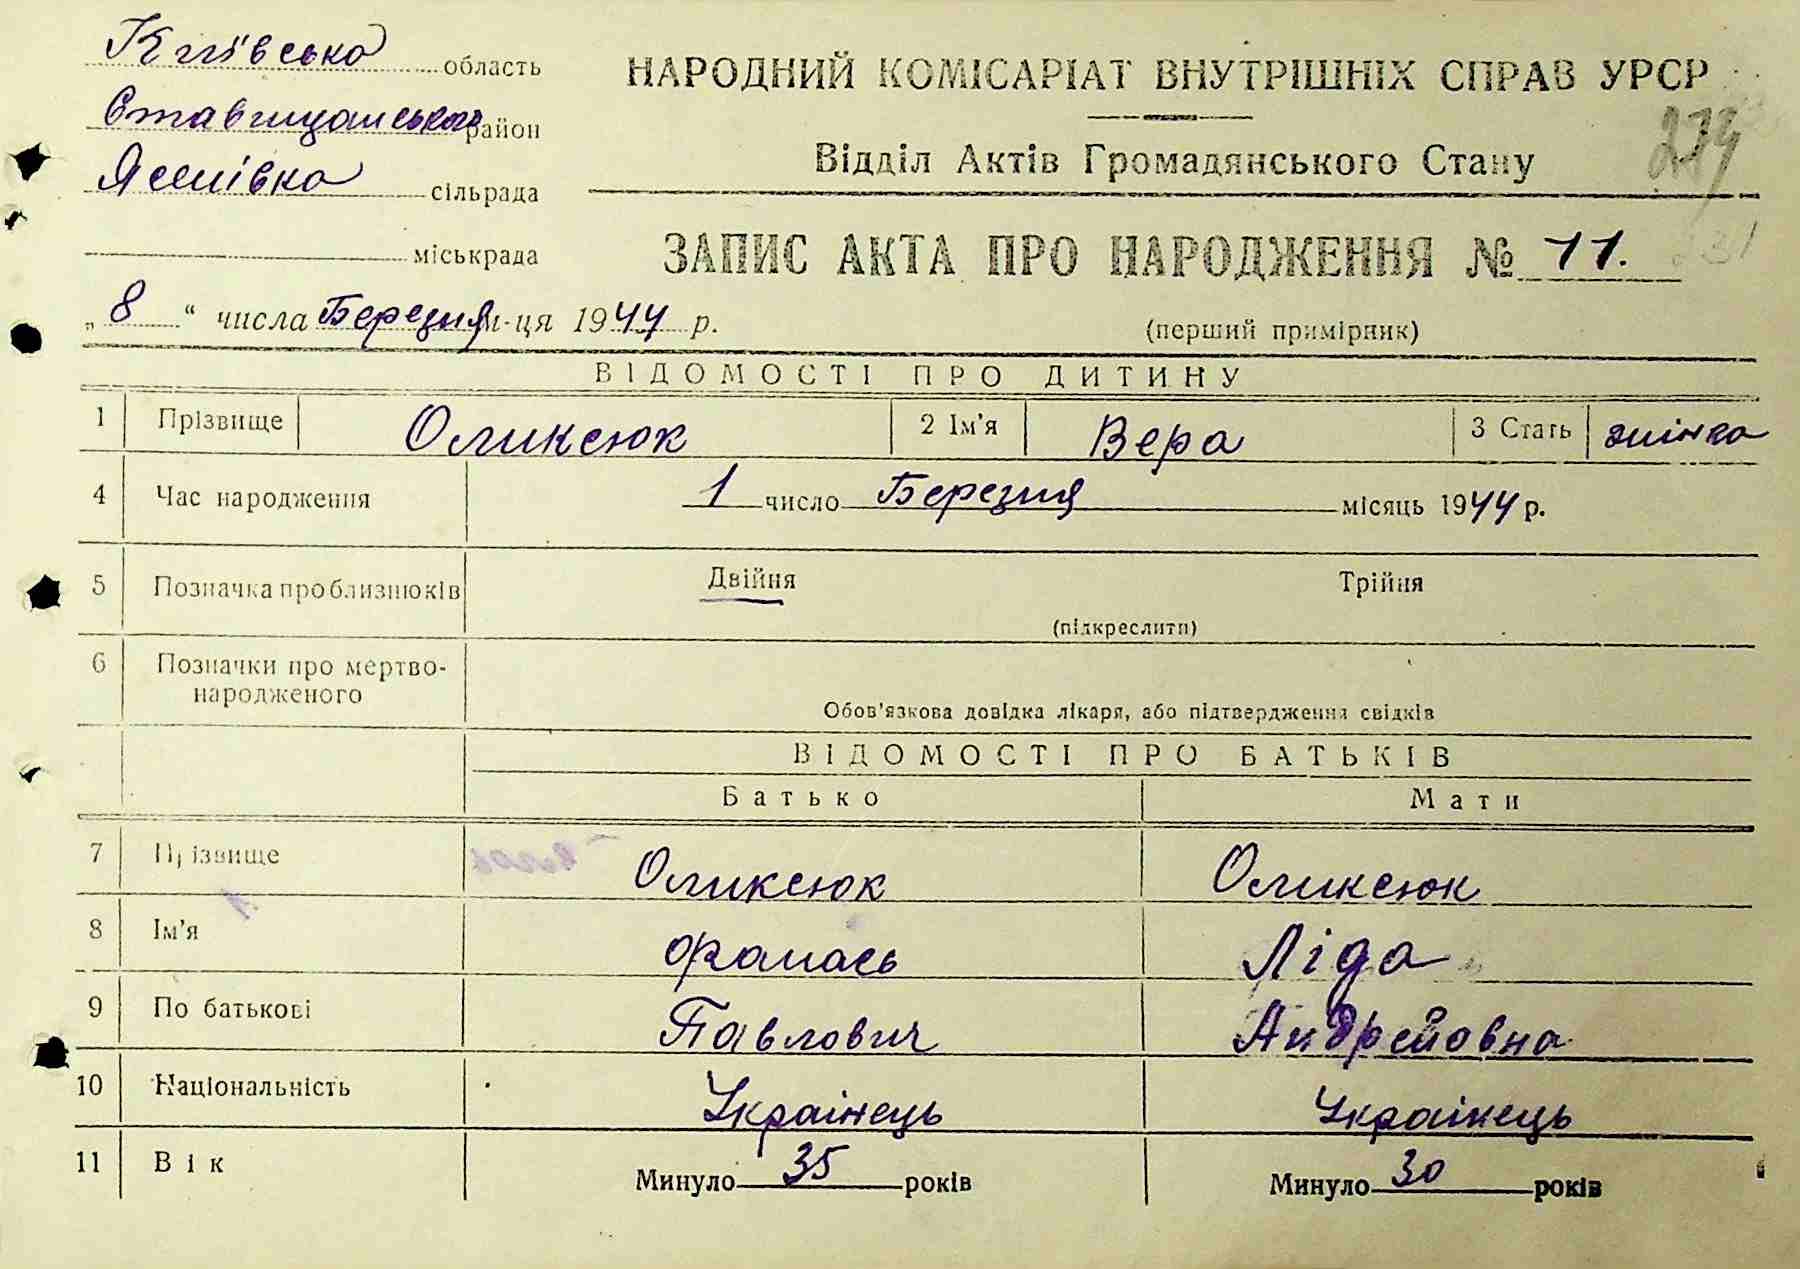 Київська область
Ставищанського район
Яснівка сільрада
міськрада
НАРОДНИЙ КОМІСАРІАТ ВНУТРІШНІХ СПРАВ УРСР
Відділ Актів Громадянського Стану
279
ЗАПИС АКТА ПРО НАРОДЖЕННЯ № 11.
231
„8“ числа Березня м-ця 1944 р.
(перший примірник)
ВІДОМОСТІ ПРО ДИТИНУ
1 Прізвище Оликсюк 2 Ім'я Вера 3 Стать жінка
4 Час народження 1 число Березня місяць 1944 р.
5 Позначка про близнюків Двійня Трійня
(підкреслити)
6 Позначки про мертво-
народженого
Обов'язкова довідка лікаря, або підтвердження свідків
ВІДОМОСТІ ПРО БАТЬКІВ
Батько Мати
7 Прізвище Оликсюк Оликсюк
8 Ім'я Ліда
9 По батькові Павлович Андрейовна
10 Національність Украінець Украінець
11 Вік Минуло 35 років Минуло 30 років